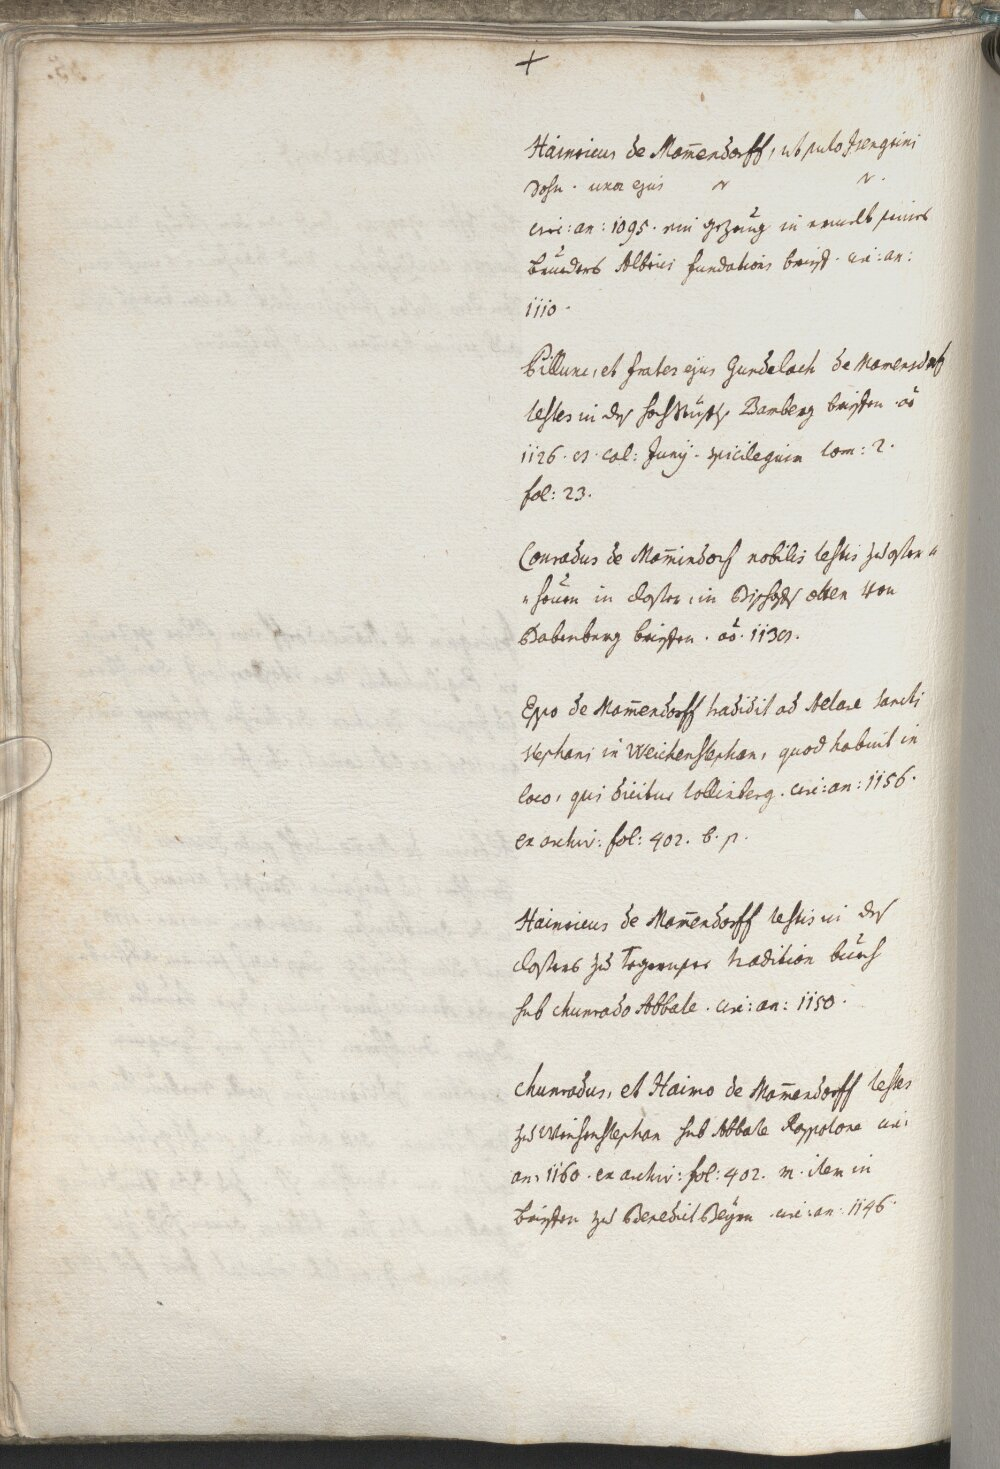 +
Hainricus de Mam̄endorff, ut puto Isengrini
Sohn. uxor ejus N N.
circ: an: 1095. ein gezeüg in seines
brueders Albrici fundations brief. circ: an:
1110.
Pillunc, et frater ejus Gundelach de Mamensdorf
testes in der hochstüfft Bamberg briefen. aō
1126. cal: Junij. spicilegium tom: 2.
fol: 23.
Conradus de Mam̄indorf nobilis testis zu oster=
=houen in closter, in Bischoffs otten von
Babenberg briefen. aō. 1139.
Eppo de Mam̄endorff tradidit ad Altare sancti
stephani in Weichenstephan, quod habuit in
loco, qui dicitur tollinberg. circ: an: 1156.
ex archiv: fol: 402. b. p.
Hainricus de Mam̄endorff testis in der
closters zu Tegernsee tradition buech
sub chunrado Abbate. circ: an: 1150.
chunradus, et Haimo de Mam̄endorff testes
zu Weichenstephan sub Abbate Rappotone circ:
an: 1160. ex archiv: fol: 402. m. item in
briefen zu Benedict Beÿrn. circ: an: 1146.